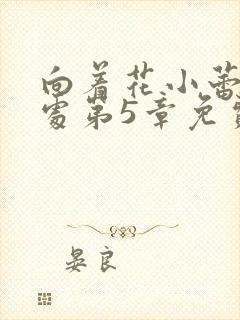 向着花小蕾
处第5章免费
晏良